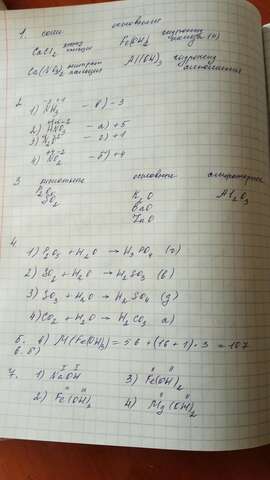 1. соли основания
CaCl₂ хлорид кальция Fe(OH)₂ гидроксид железа (II)
Ca(NO₃)₂ нитрат кальция Al(OH)₃ гидроксид алюминия
2.
1) NH₃ – в) -3
2) HNO₃ – а) +5
3) – г) +1
4) NO₂ – б) +4
3 кислотные основные амфотерные
P₂O₅ K₂O Al₂O₃
SO₂ BaO
ZnO
4.
1) P₂O₅ + H₂O → H₃PO₄ (г)
2) SO₂ + H₂O → H₂SO₃ (в)
3) SO₃ + H₂O → H₂SO₄ (д)
4) CO₂ + H₂O → H₂CO₃ а)
5. в) M(Fe(OH)₃) = 56 + (16 + 1) · 3 = 107
6. б)
7. 1) NaOH 3) Fe(OH)₂
2) Fe(OH)₃ 4) Mg(OH)₂